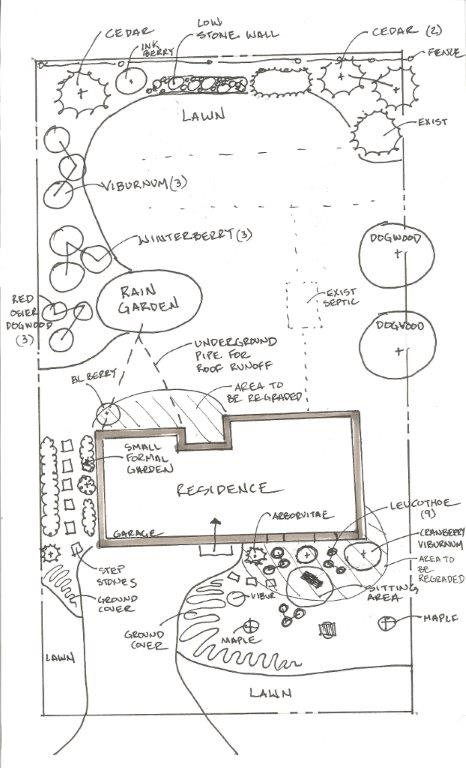 CEDAR
INK
BERRY
LOW
STONE WALL
CEDAR (2)
FENCE
LAWN
EXIST
VIBURNUM (3)
WINTERBERRY (3)
DOGWOOD
RAIN
GARDEN
EXIST
SEPTIC
RED
OSIER
DOGWOOD
(3)
UNDERGROUND
PIPE FOR
ROOF RUNOFF
DOGWOOD
BL BERRY
AREA TO
BE REGRADED
SMALL
FORMAL
GARDEN
RESIDENCE
LEUCOTHOE
(9)
ARBORVITAE
GARAGE
CRANBERRY
VIBURNUM
AREA TO
BE
REGRADED
STEP
STONES
GROUND
COVER
VIBUR
SITTING
AREA
GROUND
COVER
MAPLE
MAPLE
LAWN
LAWN